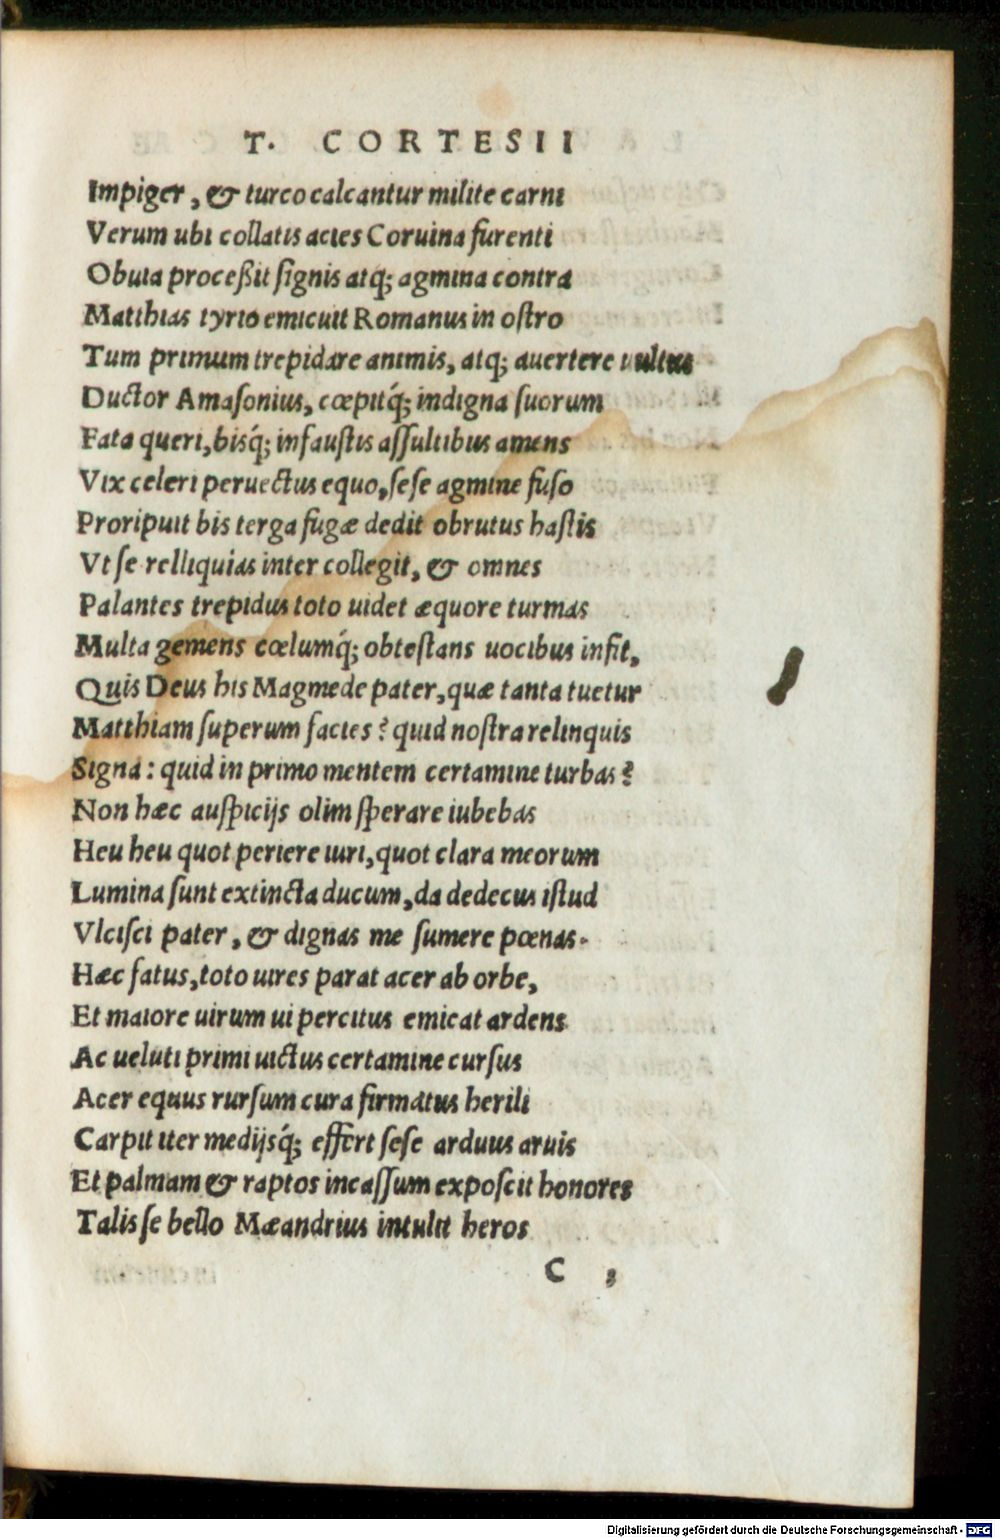 T. CORTESII
Impiger, & turco calcantur milite carni
Verum ubi collatis acies Coruina furenti
Obuia proceßit signis atq; agmina contra
Matthias tyrio emicuit Romanus in ostro
Tum primum trepidare animis, atq; auertere uultus
Ductor Amasonius, cœpitq́; indigna suorum
Fata queri, bisq́; infaustis assultibus amens
Vix celeri peruectus equo, sese agmine fuso
Proripuit bis terga fugæ dedit obrutus hastis
Vt se relliquias inter collegit, & omnes
Palantes trepidus toto uidet æquore turmas
Multa gemens cœlumq́; obtestans uocibus infit,
Quis Deus his Magmede pater, quæ tanta tuetur
Matthiam superum facies? quid nostra relinquis
Signa: quid in primo mentem certamine turbas?
Non hæc auspicijs olim sperare iubebas
Heu heu quot periere uiri, quot clara meorum
Lumina sunt extincta ducum, da dedecus istud
Vlcisci pater, & dignas me sumere pœnas.
Hæc fatus, toto uires parat acer ab orbe,
Et maiore uirum ui percitus emicat ardens
Ac ueluti primi uictus certamine cursus
Acer equus rursum cura firmatus herili
Carpit iter medijsq́; effert sese arduus aruis
Et palmam & raptos incassum exposcit honores
Talis se bello Mæandrius intulit heros
C ;
Digitalisierung gefördert durch die Deutsche Forschungsgemeinschaft - DFG